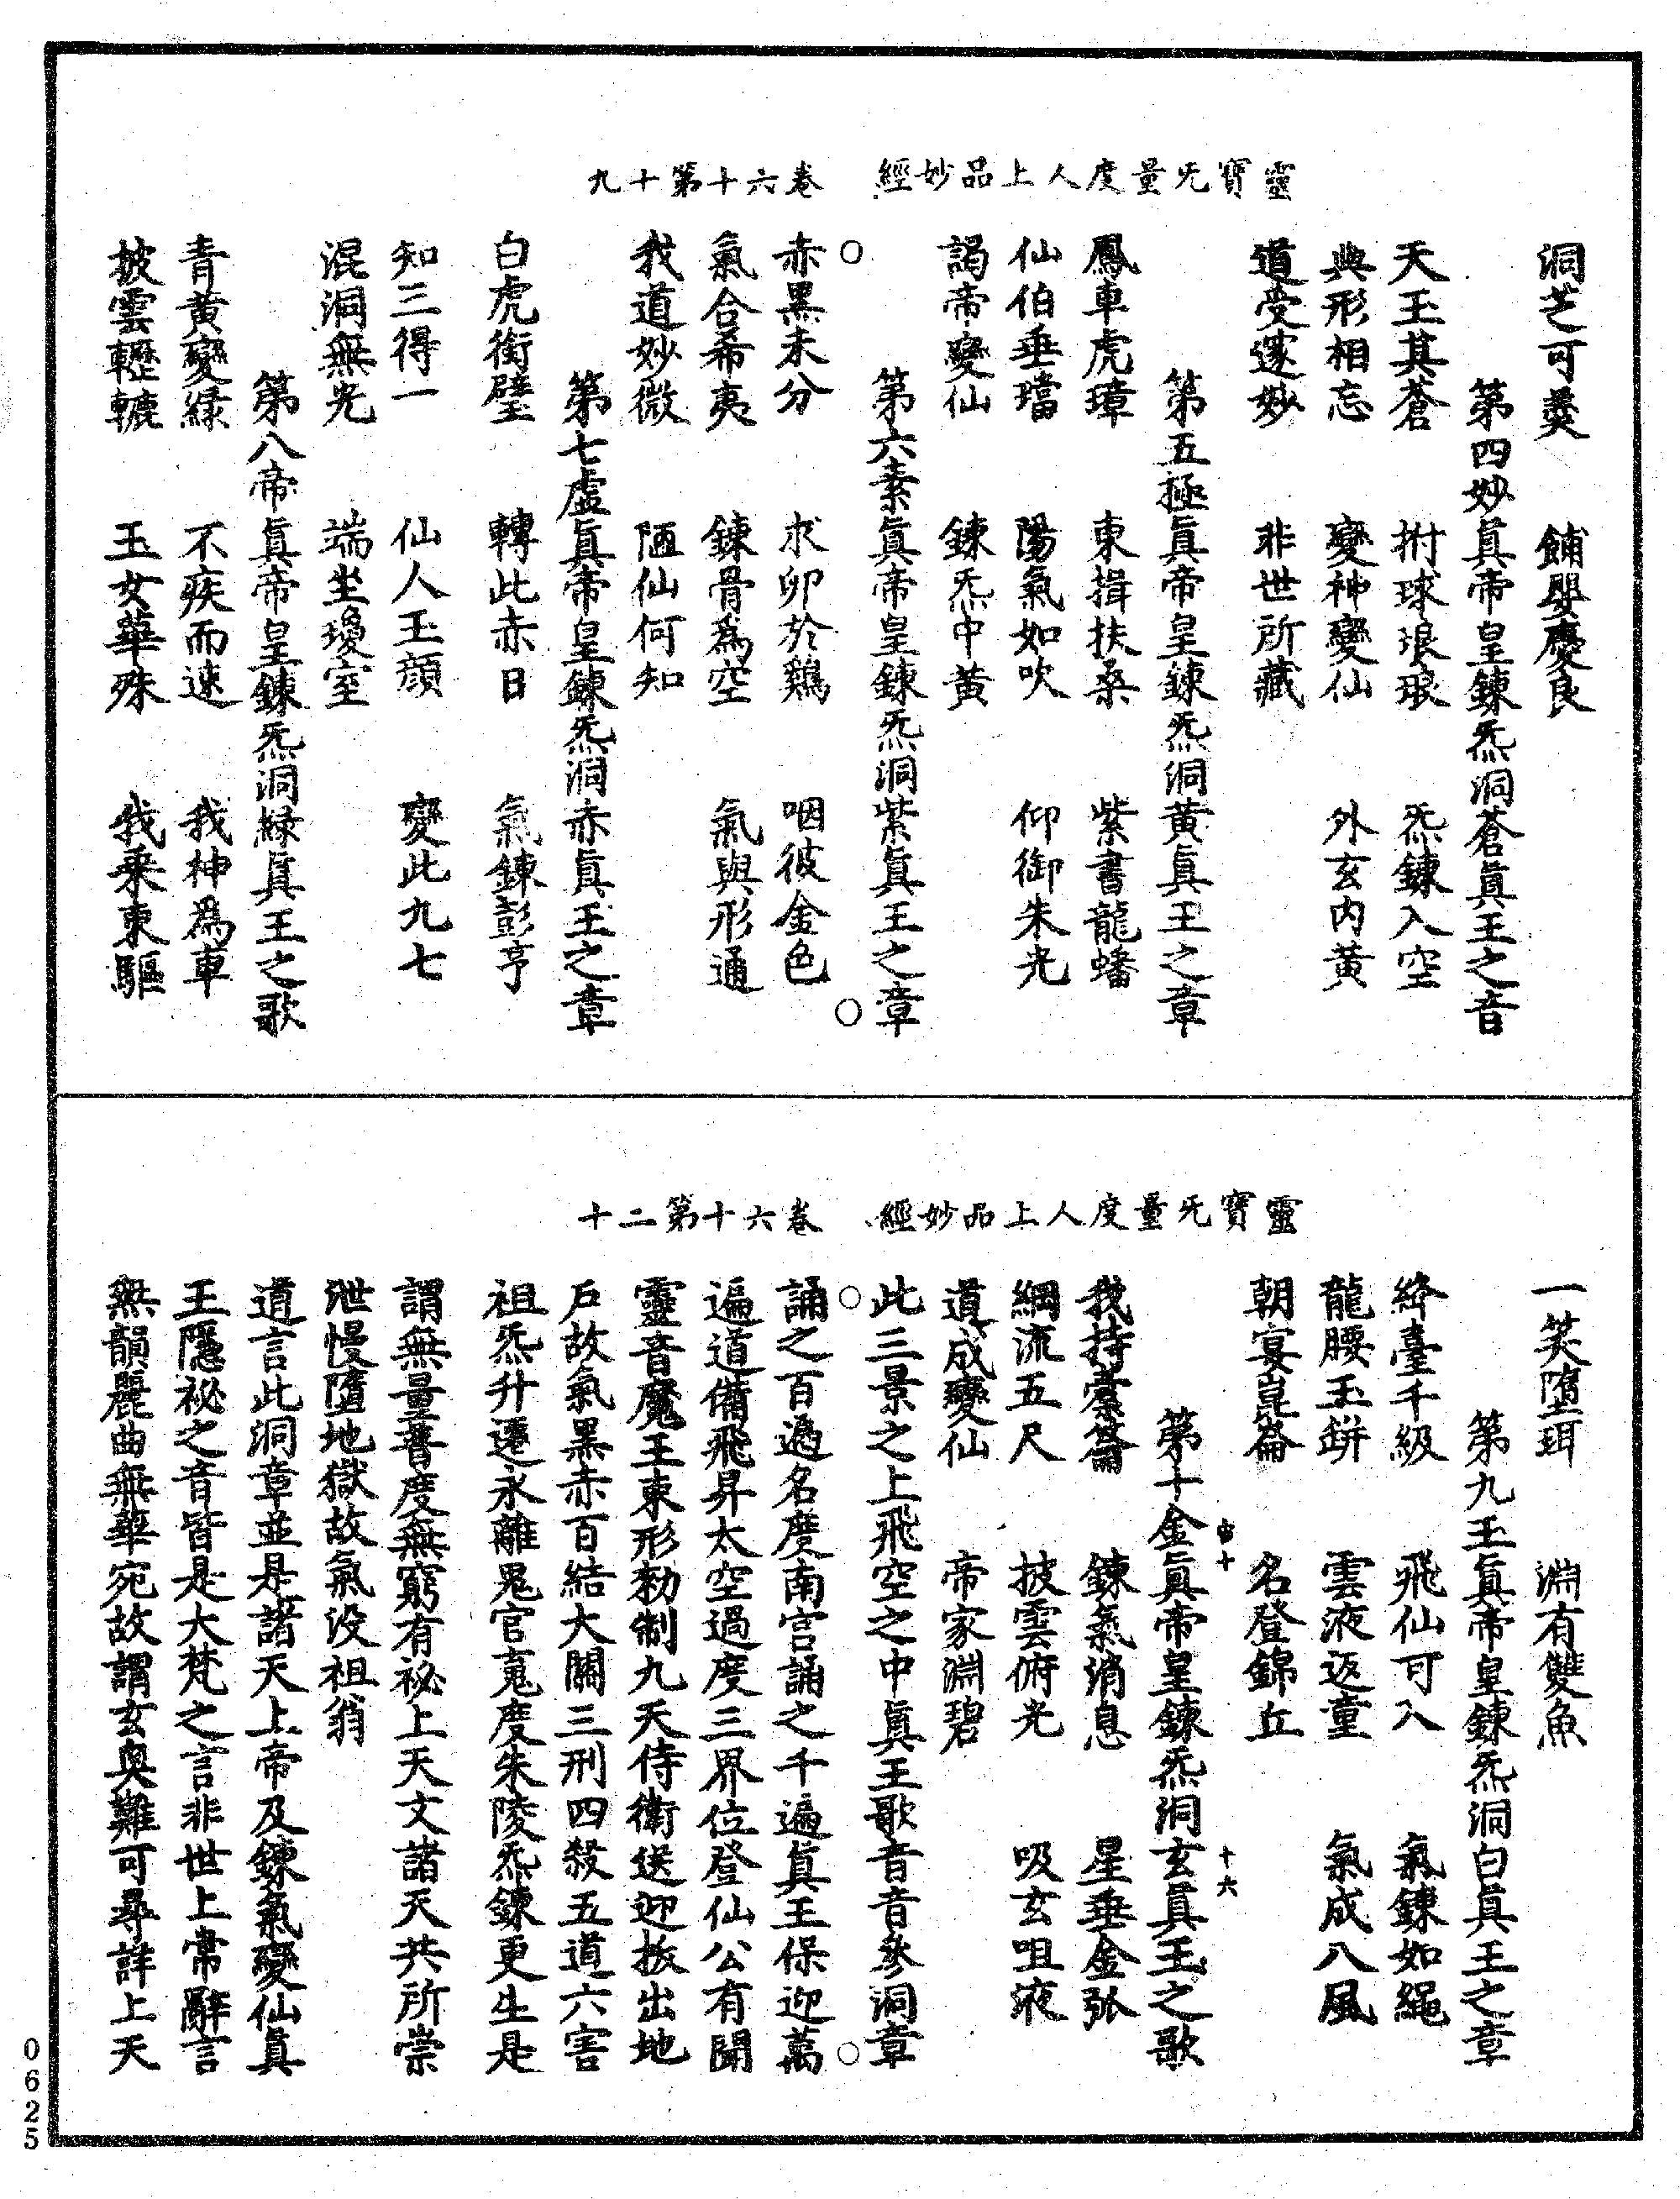 靈寶无量度人上品妙經　卷六十第十九
洞芝可羹　餔嬰慶良
第四妙眞帝皇鍊炁洞蒼眞王之音
天玉其蒼　拊球琅琅　炁鍊入空
典形相忘　變神變仙　外玄內黃
道受邃妙　非世所藏
第五極眞帝皇鍊炁洞黃眞王之章
鳳車虎璋　東揖扶桑　紫書龍蟠
仙伯垂璫　陽氣如吹　仰御朱光
謁帝變仙　鍊炁中黃
第六素眞帝皇鍊炁洞紫眞王之章
赤黑未分　求卵於鷄　咽彼金色
氣合希夷　鍊骨爲空　氣與形通
我道妙微　陋仙何知
第七虛眞帝皇鍊炁洞赤眞王之章
白虎銜璧　轉此赤日　氣鍊彭亨
知三得一　仙人玉顔　變此九七
混洞無光　端坐瓊室
第八帝眞帝皇鍊炁洞綠眞王之歌
青黃變綠　不疾而速　我神爲車
披雲轣轆　玉女華殊　我乘東驅
靈寶无量度人上品妙經　卷六十第二十
一笑墮珥　淵有雙魚
第九玉眞帝皇鍊炁洞白眞王之章
絳臺千級　飛仙可入　氣鍊如繩
龍腰玉鉼　雲液返童　氣成八風
朝宴崑崙　名登錦丘
宙十　十六
第十金眞帝皇鍊炁洞玄眞王之歌
我持橐籥　鍊氣消息　星垂金弧
綱流五尺　披雲俯光　吸玄咀液
道成變仙　帝家淵碧
此三景之上飛空之中眞王歌音音參洞章
誦之百過名度南宫誦之千遍眞王保迎萬
遍道備飛昇太空過度三界位登仙公有聞
靈音魔王束形勑制九天侍衛送迎拔出地
戶故氣黑赤百結大關三刑四殺五道六害
祖炁升遷永離鬼官䰟度朱陵炁鍊更生是
謂無量普度無窮有祕上天文諸天共所崇
泄慢墮地獄故氣没祖翁
道言此洞章並是諸天上帝及鍊氣變仙眞
王隱祕之音皆是大梵之言非世上常辭言
無韻麗曲無華宛故謂玄奧難可尋詳上天
0625